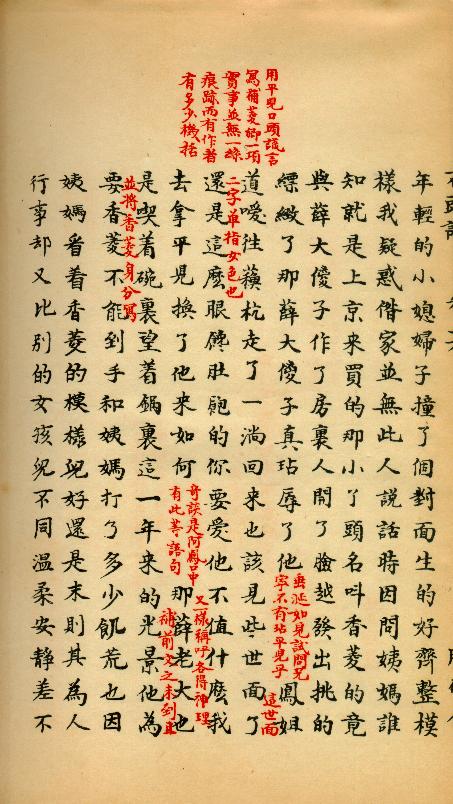 用平兒口頭謊言
寫補菱卿一項
實事並無一絲
痕跡而有作者
有多少機括
年輕的小媳婦子撞了個對面生的好齊整模
樣我疑惑偺家並無此人說話時因問姨媽誰
知就是上京來買的那小丫頭名呌香菱的竟
與薛大傻子作了房裏人開了臉越發出挑的
縹緻了那薛大傻子真玷辱了他
垂涎如見試問兄
寧不有玷平兒乎
鳳姐
道噯徃蘓杭走了一淌回來也該見些世面了
這世面
二字單指女色也
還是這麽眼饞肚飽的你要愛他不值什麽我
去拿平兒換了他來如何
奇談是阿鳳口中
有此等語句
那薛老大也
又一樣稱呼各得神理
是喫着碗裏望着鍋裏這一年來的光景他為
補前文之未到且
並將香菱身分寫
要香菱不能到手和姨媽打了多少飢荒也因
姨媽看着香菱的模樣兒好還是末則其為人
行事却又比別的女孩兒不同温柔安靜差不